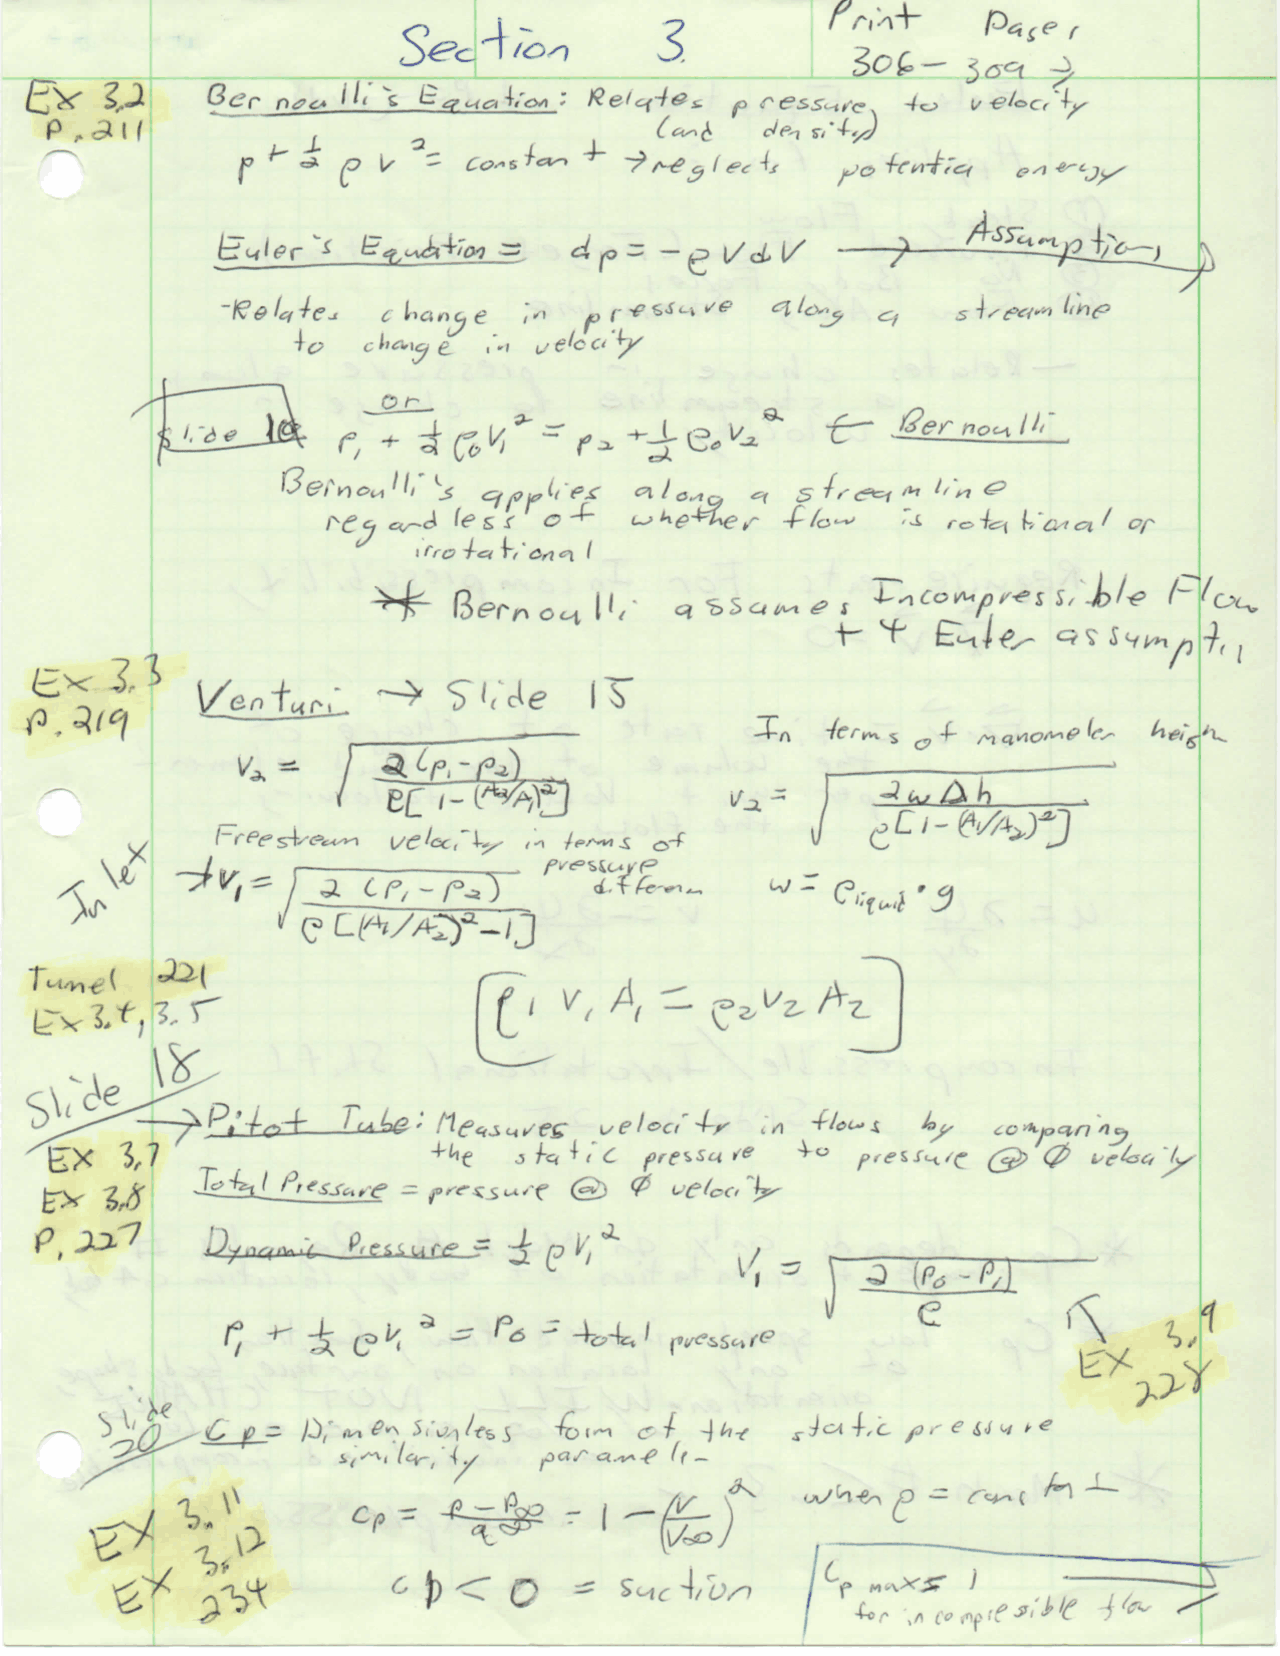 Section 3.
Print Pages
306-309 →
EX 3.2
P. 211
Bernoulli's Equation: Relates pressure, to velocity
(and density)
p + 1/2 ρ v² = constant → neglects potential energy
Euler's Equation = dp = -ρVdV → Assumptions
-Relates change in pressure along a streamline
to change in velocity
Slide 10
or
p₁ + 1/2 ρ₀V₁² = p₂ + 1/2 ρ₀V₂² ← Bernoulli
Bernoulli's applies along a streamline
regardless of whether flow is rotational or
irrotational
* Bernoulli assumes Incompressible Flow
+ 4 Euler assumptns
EX 3.3
P. 219
Venturi → Slide 15
In terms of manometer heigh
V₂ = √(2(p₁-p₂) / ρ[1-(A₂/A₁)²])
V₂ = √(2wΔh / ρ[1-(A₁/A₂)²])
Freestream velocity in terms of
pressure
differen
Inlet
→V₁ = √(2(p₁-p₂) / ρ[(A₁/A₂)²-1])
w = ρliquid · g
Tunnel 221
Ex 3.4, 3.5
[ρ₁ V₁ A₁ = ρ₂ V₂ A₂]
Slide 18
→ Pitot Tube: Measures velocity in flows by comparing
the static pressure to pressure @ Ø velocity
EX 3.7
EX 3.8
P. 227
Total Pressure = pressure @ Ø velocity
Dynamic Pressure = 1/2 ρV₁²
V₁ = √(2(P₀-P₁) / ρ)
P₁ + 1/2 ρV₁² = P₀ = total pressure
EX 3.9
228
Slide
20
Cp = Dimensionless form of the static pressure
similarity paramete
Cp = (P-P∞)/q∞ = 1-(V/V∞)² when ρ = constant
EX 3.11
EX 3.12
234
cp < 0 = suction
Cp max = 1
for incompressible flow